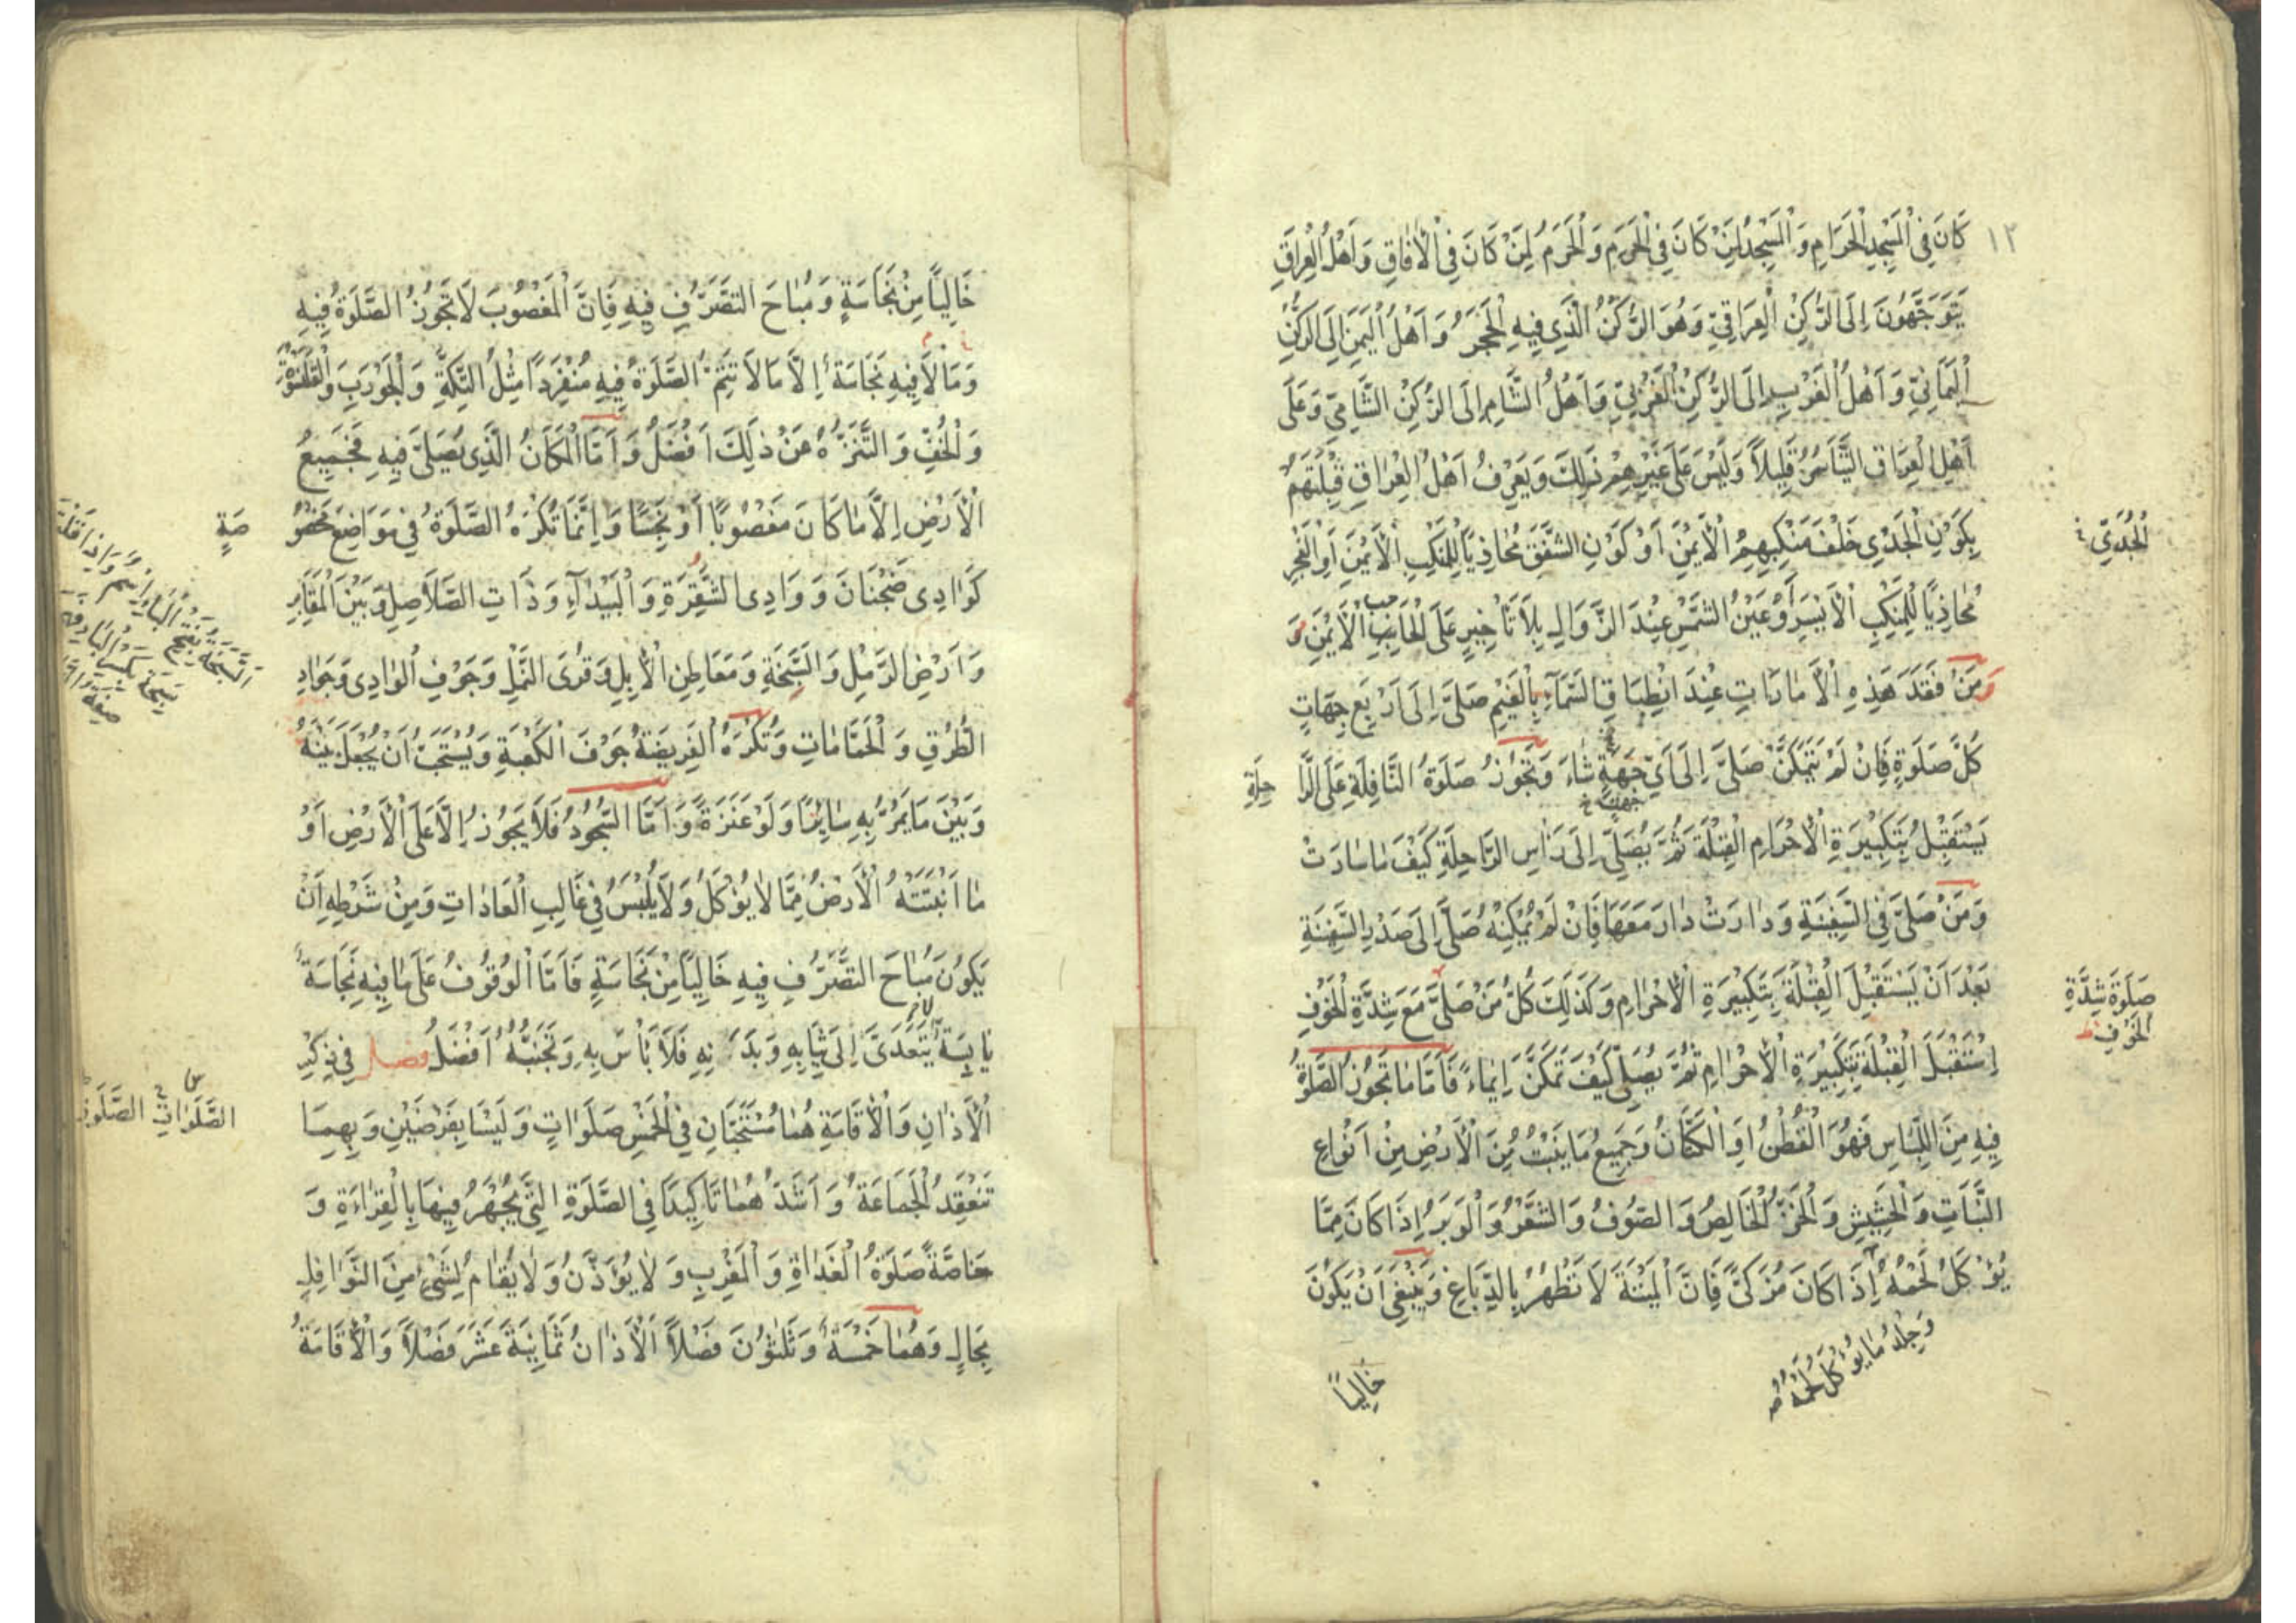 ١٢
كَانَ فِي الْمَسْجِدِ الْحَرَامِ وَالْمَسْجِدُ لِمَنْ كَانَ فِي الْحَرَمِ وَالْحَرَمُ لِمَنْ كَانَ فِي الْآفَاقِ وَاَهْلُ الْعِرَاقِ
يَتَوَجَّهُونَ اِلَى الرُّكْنِ الْعِرَاقِيِّ وَهُوَ الرُّكْنُ الَّذِي فِيهِ الْحَجَرُ وَاَهْلُ الْيَمَنِ اِلَى الرُّكْنِ
الْيَمَانِيِّ وَاَهْلُ الْغَرْبِ اِلَى الرُّكْنِ الْغَرْبِيِّ وَاَهْلُ الشَّامِ اِلَى الرُّكْنِ الشَّامِيِّ وَعَلَى
اَهْلِ الْعِرَاقِ التَّيَاسُرُ قَلِيلاً وَلَيْسَ عَلَى غَيْرِهِمْ ذَلِكَ وَيَعْرِفُ اَهْلُ الْعِرَاقِ قِبْلَتَهُمْ
بِكَوْنِ الْجَدْيِ خَلْفَ مَنْكِبِهِمُ الْاَيْمَنِ اَوْ كَوْنِ الشَّفَقِ مُحَاذِيًا لِلْمَنْكِبِ الْاَيْمَنِ اَوِ الْفَجْرِ
الْجُدَيّ
مُحَاذِيًا لِلْمَنْكِبِ الْاَيْسَرِ اَوْ عَيْنِ الشَّمْسِ عِنْدَ الزَّوَالِ بِلَا تَأْخِيرٍ عَلَى الْحَاجِبِ الْاَيْمَنِ وَ
وَمَنْ فَقَدَ هَذِهِ الْاَمَارَاتِ عِنْدَ انْطِبَاقِ السَّمَاءِ بِالْغَيْمِ صَلَّى اِلَى اَرْبَعِ جِهَاتٍ
كُلَّ صَلَوةٍ فَاِنْ لَمْ يَتَمَكَّنْ صَلَّى اِلَى اَيِّ جِهَةٍ شَاءَ وَتَجُوزُ صَلَوةُ النَّافِلَةِ عَلَى الرَّا حِلَةِ
جهات خ
يَسْتَقْبِلُ بِتَكْبِيرَةِ الْاِحْرَامِ الْقِبْلَةَ ثُمَّ يُصَلِّي اِلَى رَأْسِ الرَّاحِلَةِ كَيْفَ مَا سَارَتْ
وَمَنْ صَلَّى فِي السَّفِينَةِ وَدَارَتْ دَارَ مَعَهَا فَاِنْ لَمْ يُمْكِنْهُ صَلَّى اِلَى صَدْرِ السَّفِينَةِ
بَعْدَ اَنْ يَسْتَقْبِلَ الْقِبْلَةَ بِتَكْبِيرَةِ الْاِحْرَامِ وَكَذَلِكَ كُلُّ مَنْ صَلَّى مَعَ شِدَّةِ الْخَوْفِ
صَلَوةَ شِدَّةِ
الْخَوْفِ
اِسْتَقْبَلَ الْقِبْلَةَ بِتَكْبِيرَةِ الْاِحْرَامِ ثُمَّ يُصَلِّي كَيْفَ تَمَكَّنَ اِيمَاءً فَاَمَّا مَا تَجُوزُ الصَّلَوةُ
فِيهِ مِنَ اللِّبَاسِ فَهُوَ الْقُطْنُ اَوِ الْكَتَّانُ وَجَمِيعُ مَا يَنْبُتُ مِنَ الْاَرْضِ مِنْ اَنْوَاعِ
النَّبَاتِ وَالْحَشِيشِ وَالْخَزُّ الْخَالِصُ وَالصُّوفُ وَالشَّعْرُ وَالْوَبَرُ اِذَا كَانَ مِمَّا
يُؤْكَلُ لَحْمُهُ اِذَا كَانَ مُزَكًّى فَاِنَّ الْمَيْتَةَ لَا تَطْهُرُ بِالدِّبَاغِ وَيَنْبَغِي اَنْ يَكُونَ
وَجِلْدُ مَا يُؤْكَلُ لَحْمُهُ
خَالِياً
خَالِياً مِنْ نَجَاسَةٍ وَمُبَاحَ التَّصَرُّفِ فِيهِ فَاِنَّ الْمَغْصُوبَ لَا تَجُوزُ الصَّلَوةُ فِيهِ
وَمَا لَا فِيهِ نَجَاسَةٌ اِلَّا مَا لَا تَتِمُّ الصَّلَوةُ فِيهِ مُنْفَرِداً مِثْلُ التِّكَّةِ وَالْجَوْرَبِ وَالْقَلَنْسُوَةِ
وَالْخُفِّ وَالتَّنَزُّهُ عَنْ ذَلِكَ اَفْضَلُ وَاَمَّا الْمَكَانُ الَّذِي يُصَلَّى فِيهِ فَجَمِيعُ
الْاَرْضِ اِلَّا مَا كَانَ مَغْصُوبًا اَوْ نَجِسًا وَاِنَّمَا تُكْرَهُ الصَّلَوةُ فِي مَوَاضِعَ مَخْصُو صَةٍ
كَوَادِي ضَجْنَانَ وَوَادِي الشُّقْرَةِ وَالْبَيْدَاءِ وَذَاتِ الصَّلَاصِلِ وَبَيْنَ الْمَقَابِرِ
وَاَرْضِ الرَّمْلِ وَالسَّبَخَةِ وَمَعَاطِنِ الْاِبِلِ وَقُرَى النَّمْلِ وَجَوْفِ الْوَادِي وَجَوَادِ
الطُّرُقِ وَالْحَمَّامَاتِ وَتُكْرَهُ الْفَرِيضَةُ جَوْفَ الْكَعْبَةِ وَيُسْتَحَبُّ اَنْ يُجْعَلَ بَيْنَهُ
وَبَيْنَ مَا يَمُرُّ بِهِ سَاتِرًا وَلَوْ عَنَزَةً وَاَمَّا السُّجُودُ فَلَا يَجُوزُ اِلَّا عَلَى الْاَرْضِ اَوْ
مَا اَنْبَتَتْهُ الْاَرْضُ مِمَّا لَا يُؤْكَلُ وَلَا يُلْبَسُ فِي غَالِبِ الْعَادَاتِ وَمِنْ شَرْطِهِ اَنْ
يَكُونَ مُبَاحَ التَّصَرُّفِ فِيهِ خَالِيًا مِنْ نَجَاسَةٍ فَاَمَّا الْوُقُوفُ عَلَى مَا فِيهِ نَجَاسَةٌ
يَابِسَةٌ لَا يَتَعَدَّى اِلَى ثِيَابِهِ وَبَدَنِهِ فَلَا بَأْسَ بِهِ وَتَجَنُّبُهُ اَفْضَلُ فصل فِي ذِكْرِ
الْاَذَانِ وَالْاِقَامَةِ هُمَا مُسْتَحَبَّانِ فِي الْخَمْسِ صَلَوَاتٍ وَلَيْسَا بِفَرْضَيْنِ وَبِهِمَا
تَنْعَقِدُ الْجَمَاعَةُ وَاَشَدُّ هُمَا تَأكِيدًا فِي الصَّلَوةِ الَّتِي يُجْهَرُ فِيهَا بِالْقِرَاءَةِ وَ
خَاصَّةً صَلَوةُ الْغَدَاةِ وَالْمَغْرِبِ وَلَا يُؤَذَّنُ وَلَا يُقَامُ لِشَيْءٍ مِنَ النَّوَافِلِ
بِحَالٍ وَهُمَا خَمْسَةٌ وَثَلَثُونَ فَصْلاً اَلْاَذَانُ ثَمَانِيَةَ عَشَرَ فَصْلاً وَالْاِقَامَةُ
اَلسَّبَخَةُ بِفَتْحِ الْبَاءِ اِسْمٌ وَاِذَا قُلْتَ
سَبِخَةٌ بِكَسْرِ الْبَاءِ فَهِيَ
صِفَةٌ
الصَّلَوَاتِ